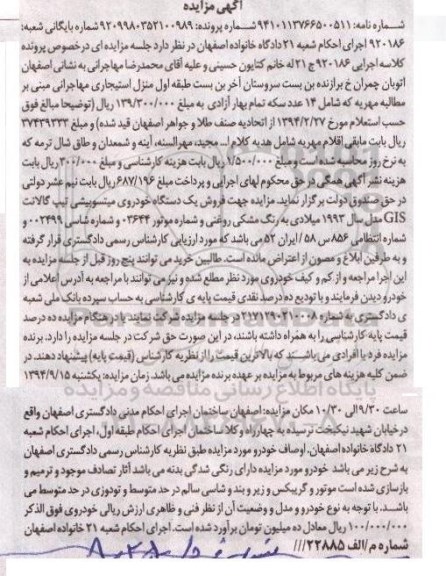 آگهی مزایده
شماره نامه: ۹۴۱۰۱۱۳۷۶۶۵۰۰۵۱۱ شماره پرونده: ۹۲۰۹۹۸۰۳۵۲۱۰۰۹۸۹ شماره بایگانی شعبه:
۹۲۰۱۸۶ اجرای احکام شعبه ۲۱ دادگاه خانواده اصفهان در نظر دارد جلسه مزایده ای در خصوص پرونده
کلاسه اجرایی ۹۲۰۱۸۶ ج ۲۱ له خانم کتایون حسینی و علیه آقای محمدرضا مهاجرانی به نشانی اصفهان
اتوبان چمران خ برازنده بن بست سروستان آخر بن بست طبقه اول منزل استیجاری مهاجرانی مبنی بر
مطالبه مهریه که شامل ۱۴ عدد سکه تمام بهار آزادی به مبلغ ۱۳۹/۳۰۰/۰۰۰ ریال (توضیحا مبالغ فوق
حسب استعلام مورخ ۱۳۹۴/۲/۲۷ از اتحادیه صنف طلا و جواهر اصفهان قید شده) و مبلغ ۳۷۴۳۹۳۳۳
ریال بابت مابقی اقلام مهریه شامل هدیه کلام ا... مجید، مهرالسنه، آینه و شمعدان و طاق شال ترمه که
به نرخ روز محاسبه شده است و مبلغ ۹/۵۰۰/۰۰۰ ریال بابت هزینه کارشناسی و مبلغ ۳۰۰/۰۰۰ ریال بابت
هزینه نشر آگهی همگی در حق محکوم لهای اجرایی و پرداخت مبلغ ۶۸۷/۱۹۶ ریال بابت نیم عشر دولتی
در حق صندوق دولت برگزار نماید. مزایده جهت فروش یک دستگاه خودروی میتسوبیشی تیپ گالانت
GIS مدل سال ۱۹۹۳ میلادی به رنگ مشکی روغنی و شماره موتور ۰۳۶۴۴ و شماره شاسی ۰۰۲۴۹۹ و
شماره انتظامی ۸۵۶ س ۵۸ / ایران ۵۳ می باشد که مورد ارزیابی کارشناس رسمی دادگستری قرار گرفته
و به طرفین ابلاغ و مصون از اعتراض مانده است. طالبین خرید می توانند پنج روز قبل از جلسه مزایده به
این اجرا مراجعه و از کم و کیف خودروی مورد نظر مطلع شده و نیز می توانند با مراجعه به آدرس اعلامی از
خودرو دیدن فرمایند و با تودیع ده درصد نقدی قیمت پایه ی کارشناسی به حساب سپرده بانک ملی شعبه
ی دادگستری به شماره ۲۱۷۱۲۹۰۲۱۰۰۰۸ در جلسه مزایده شرکت نمایند یا در هنگام مزایده ده درصد
قیمت پایه کارشناسی را به همراه داشته باشند، در این صورت حق شرکت در جلسه مزایده را دارد. برنده
مزایده فرد یا افرادی می باشند که بالاترین قیمت را از نظریه کارشناس (قیمت پایه) پیشنهاد دهند. در
ضمن کلیه هزینه های مربوط به مزایده بر عهده برنده مزایده می باشد. زمان مزایده: یکشنبه ۱۳۹۴/۹/۱۵
پایگاه اطلاع رسانی مناقصه و مزایده
ساعت ۹/۳۰ الی ۱۰/۳۰ مکان مزایده: اصفهان ساختمان اجرای احکام مدنی دادگستری اصفهان واقع
در خیابان شهید نیکبخت نرسیده به چهارراه وکلا ساختمان اجرای احکام طبقه اول، اجرای احکام شعبه
۲۱ دادگاه خانواده اصفهان. اوصاف خودرو مورد مزایده طبق نظریه کارشناس رسمی دادگستری اصفهان
به شرح زیر می باشد خودرو مورد مزایده دارای رنگی شدگی بدنه می باشد آثار تصادف موجود و ترمیم و
بازسازی شده است موتور و گیربکس و زیر و بند و شاسی سالم در حد متوسط و تودوزی در حد متوسط می
باشد. با توجه به نوع خودرو و مدل و وضعیت آن از نظر فنی و ظاهری ارزش ریالی خودروی فوق الذکر
۱۰۰/۰۰۰/۰۰۰ ریال معادل ده میلیون تومان برآورد شده است. اجرای احکام شعبه ۲۱ خانواده اصفهان
شماره م/الف ۲۲۸۸۵///